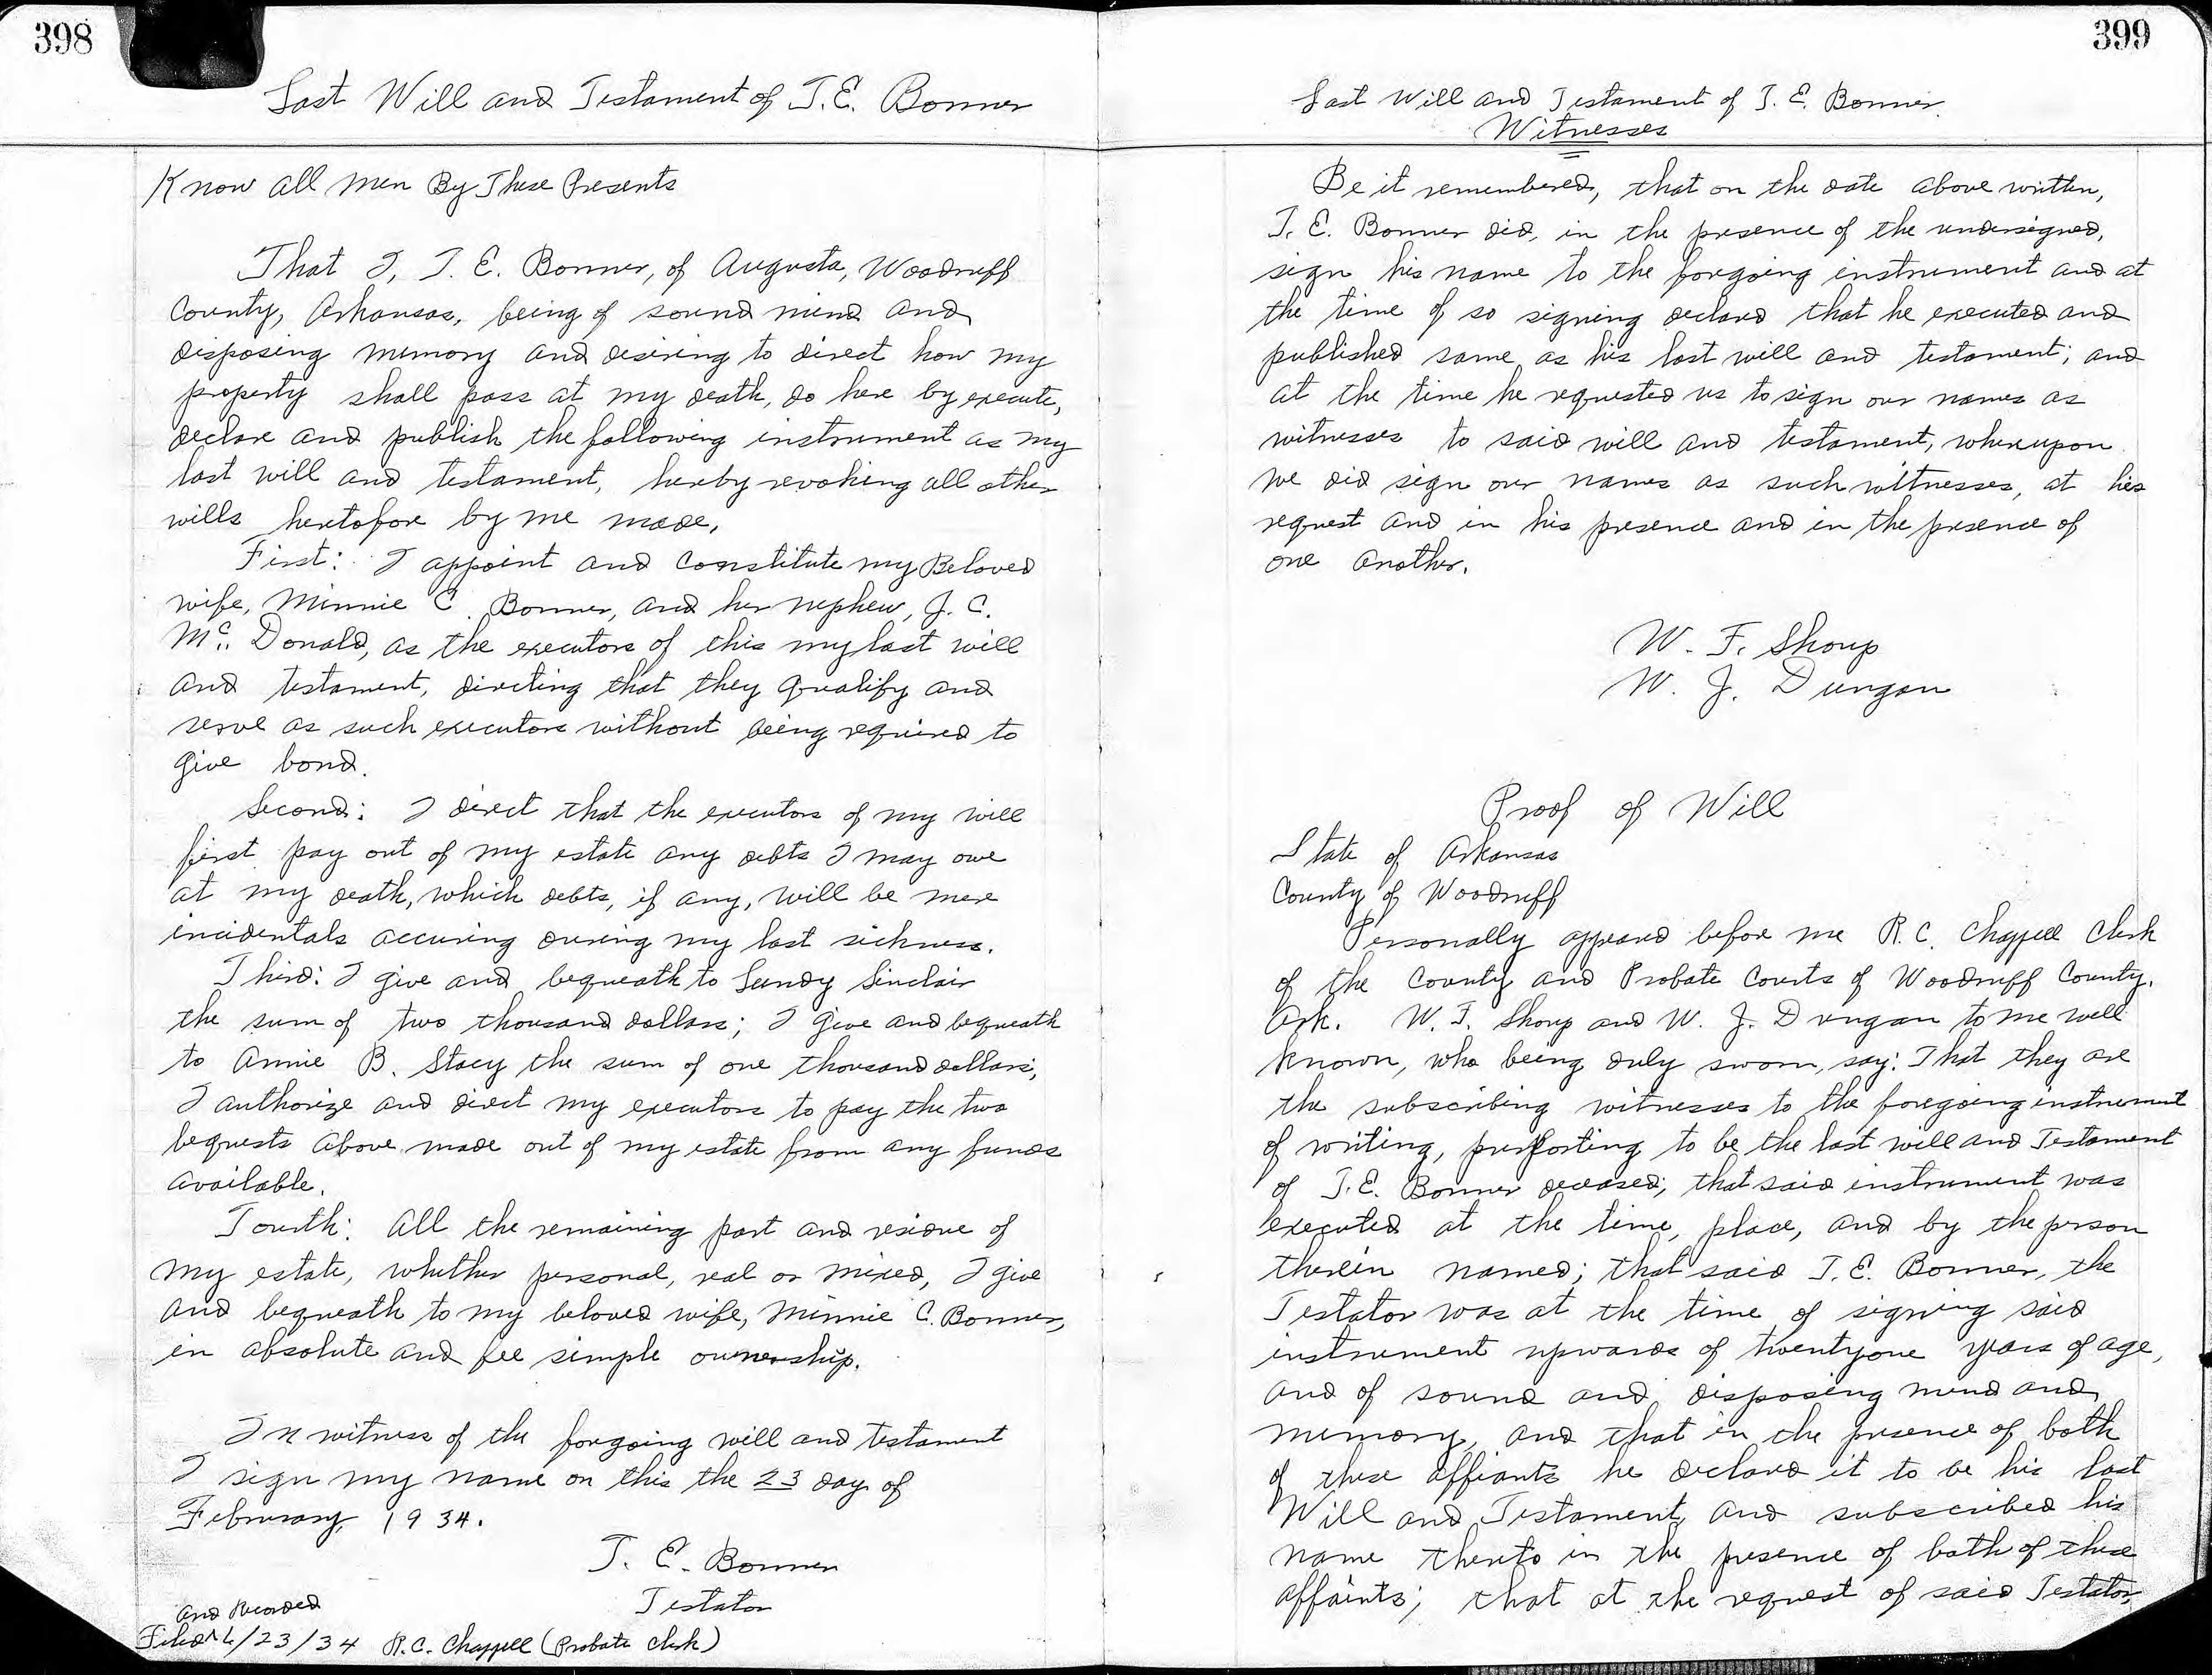 398
Last Will and Testament of T.E. Bonner
Know all men By These Presents
That I, T. E. Bonner, of Augusta, Woodruff
County, Arkansas, being of sound mind and
disposing memory and desiring to direct how my
property shall pass at my death, do here by execute,
declare and publish the following instrument as my
last will and testament, herby revoking all other
wills hertofore by me made,
First: I appoint and constitute my Beloved
wife, Minnie C. Bonner, and her nephew, J. C.
Mc. Donald, as the executors of this my last will
and testament, directing that they qualify and
serve as such executors without being required to
give bond.
Second: I direct that the executors of my will
first pay out of my estate any debts I may owe
at my death, which debts, if any, will be mere
incidentals accuring during my last sickness.
Third: I give and bequeath to Sinclair
the sum of two thousand dollars; I give and bequeath
to Annie B. Stacy the sum of one thousand dollars;
I authorize and direct my executors to pay the two
bequests above made out of my estate from any funds
available.
Fourth: All the remaining part and residue of
my estate, whether personal, real or mixed, I give
and bequeath to my beloved wife, Minnie C. Bonner,
in absolute and fee simple ownership.
In witness of the forgoing will and testament
I sign my name on this the 23 day of
February, 1934.
T. E. Bonner
Testator
And Recorded
Filed /23/34 R.C. Chappell (Probate Clerk)
399
Last Will and Testament of T. E. Bonner.
Witnesses
Be it remembered, that on the date above written,
T. E. Bonner did, in the presence of the undersigned,
sign his name to the forgoing instrument and at
the time of so signing declard that he executed and
published same as his last will and testament; and
at the time he requested us to sign our names as
witnesses to said will and testament, whereupon
we did sign our names as such witnesses, at his
request and in his presence and in the presence of
one another.
W. F. Shoup
W. J. Dungan
Proof of Will
State of Arkansas
County of Woodruff
Personally appeard before me R.C. Chappell Clerk
of the County and Probate Courts of Woodruff County,
Ark. W. F. Shoup and W. J. Dungan to me well
known, who being duly sworn, say: That they are
the subscribing witnesses to the foregoing instrument
of writing, purporting to be the last will and Testament
of T.E. Bonner deceased; that said instrument was
executed at the time, place, and by the person
therein named; that said T. E. Bonner, the
Testator was at the time of signing said
instrument upwards of twentyone years of age,
and of sound and disposing mind and
memory, and that in the presence of both
of these affiants he declard it to be his last
Will and Testament, and subscribed his
name therto in the presence of both of these
affaints; that at the request of said Testator,